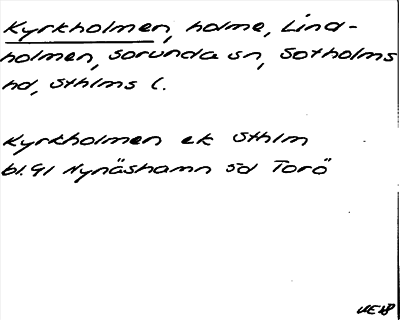 Kyrkholmen, holme, Lind-
holmen, Sorunda sn, Sotholms
hd, Sthlms l.
Kyrkholmen ek Sthlm
bl. 91 Nynäshamn sd Torö